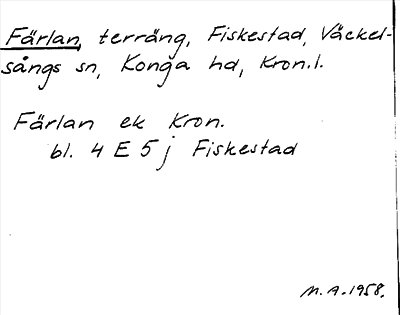 Färlan, terräng, Fiskestad, Väckel-
sångs sn, Konga hd, Kron.l.
Färlan ek Kron.
bl. 4 E 5 j Fiskestad
M.A. 1958.